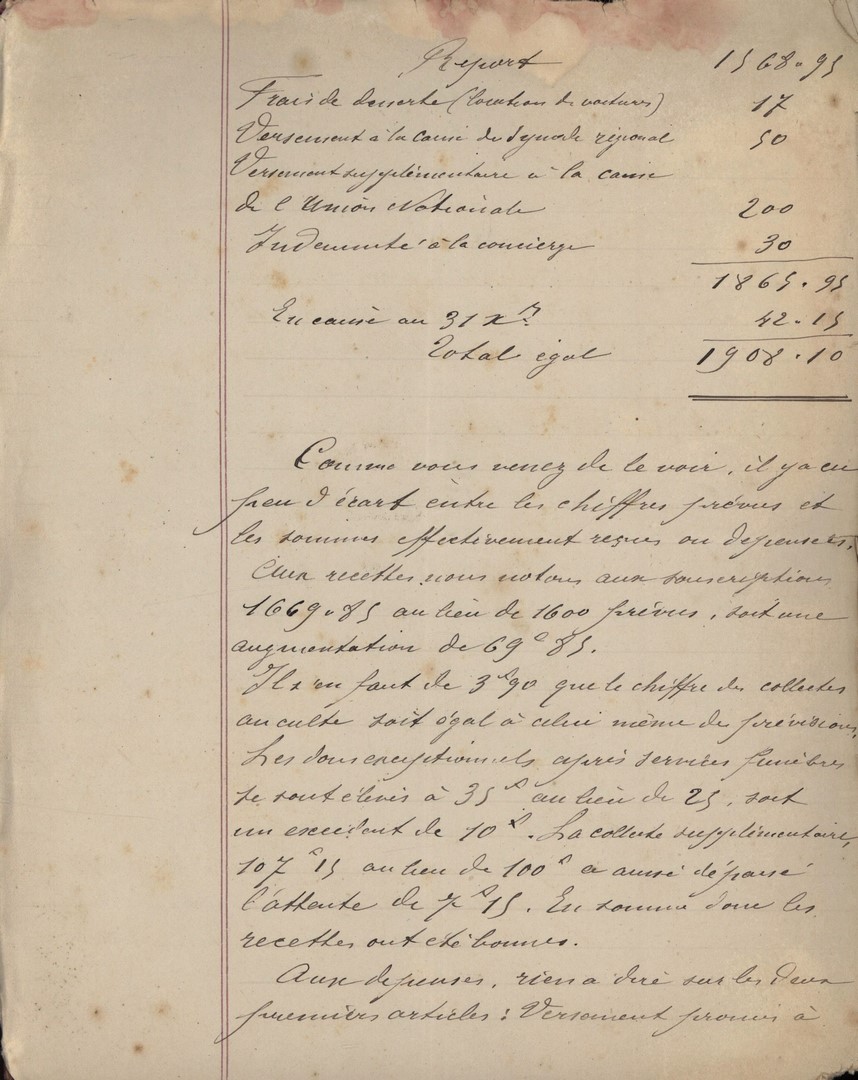 Report 1568.95
Frais de desserte (location de voitures) 17
Versement à la caisse du Synode régional 50
Versement supplémentaire à la caisse
de l'Union Nationale 200
Indemnité à la concierge 30
1865.95
En caisse au 31 Xre 42.15
Total égal 1908.10
Comme vous venez de le voir, il y a eu
peu d'écart entre les chiffres prévus et
les sommes effectivement reçues ou dépensées.
Aux recettes nous notons aux souscriptions
1669.85 au lieu de 1600 prévus, soit une
augmentation de 69f 85.
Il s'en faut de 3f90 que le chiffre des collectes
au culte soit égal à celui même des prévisions.
Les dons exceptionnels après services funèbres
se sont élevés à 35f au lieu de 25, soit
un excédent de 10f. La collecte supplémentaire,
107f15 au lieu de 100f a aussi dépassé
l'attente de 7f15. En somme donc les
recettes ont été bonnes.
Aux dépenses, rien a dire sur les deux
premiers articles : Versement promis à